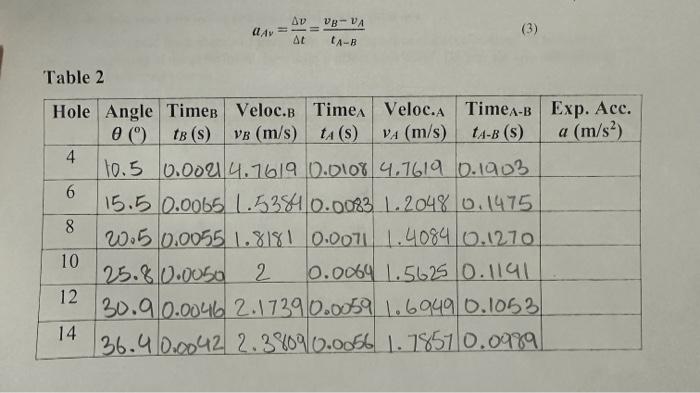 a_Av = Δv/Δt = (v_B − v_A)/t_A−B (3)
Table 2
Hole Angle θ (º) Time_B t_B (s) Veloc._B v_B (m/s) Time_A t_A (s) Veloc._A v_A (m/s) Time_A-B t_A-B (s) Exp. Acc. a (m/s²)
4 10.5 0.0021 4.7619 0.0108 4.7619 0.1903
6 15.5 0.0065 1.5384 0.0083 1.2048 0.1475
8 20.5 0.0055 1.8181 0.0071 1.4084 0.1270
10 25.8 0.0050 2 0.0064 1.5625 0.1141
12 30.9 0.0046 2.1739 0.0059 1.6949 0.1053
14 36.4 0.0042 2.3809 0.0056 1.7857 0.0989